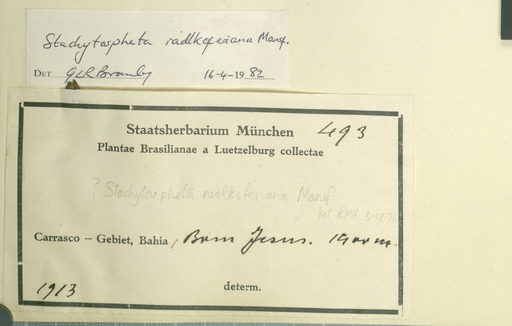 Stachytarpheta radlkoferiana Mansf.
DET. GLR Bromley 16-4-1982
Staatsherbarium München 493
Plantae Brasilianae a Luetzelburg collectae
? Stachytarpheta radlkoferiana Mansf
det RMH
Carrasco – Gebiet, Bahia, Bom Jesus.
1913 determ.